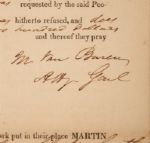 requested by the said Peo-
hitherto refused, and does
hundred Dollars
and therefore they pray
M Van Buren
Atty Genl
ork put in their place MARTIN